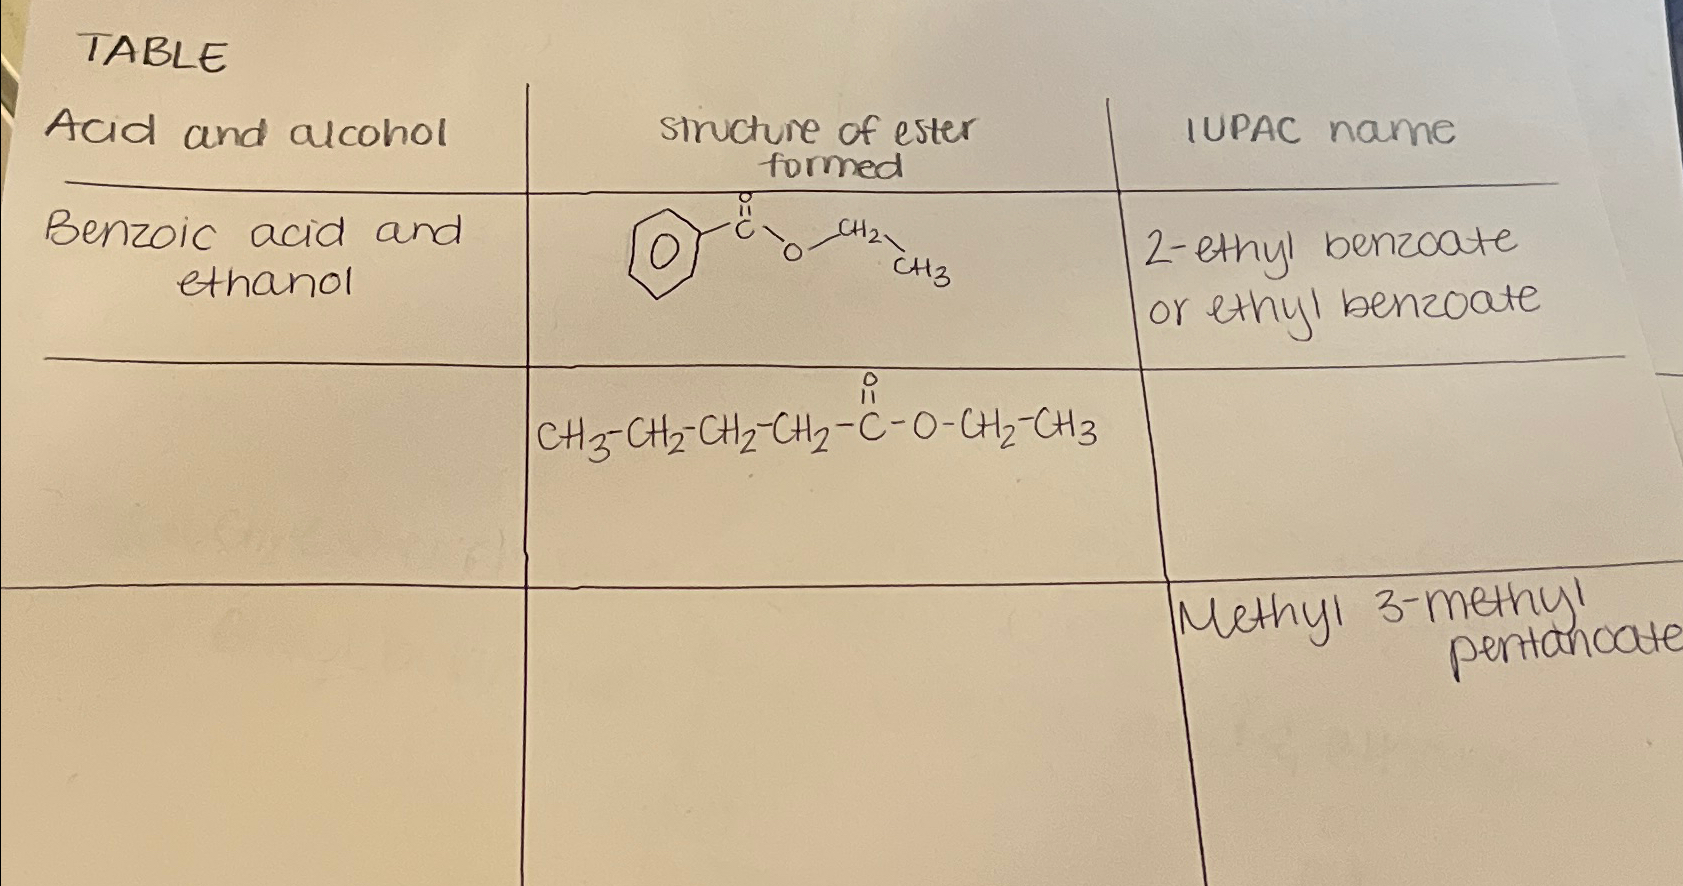 TABLE
Acid and alcohol
structure of ester
formed
IUPAC name
Benzoic acid and
ethanol
O
C
O
CH2
CH3
2-ethyl benzoate
or ethyl benzoate
O
CH3-CH2-CH2-CH2-C-O-CH2-CH3
Methyl 3-methyl
pentanoate